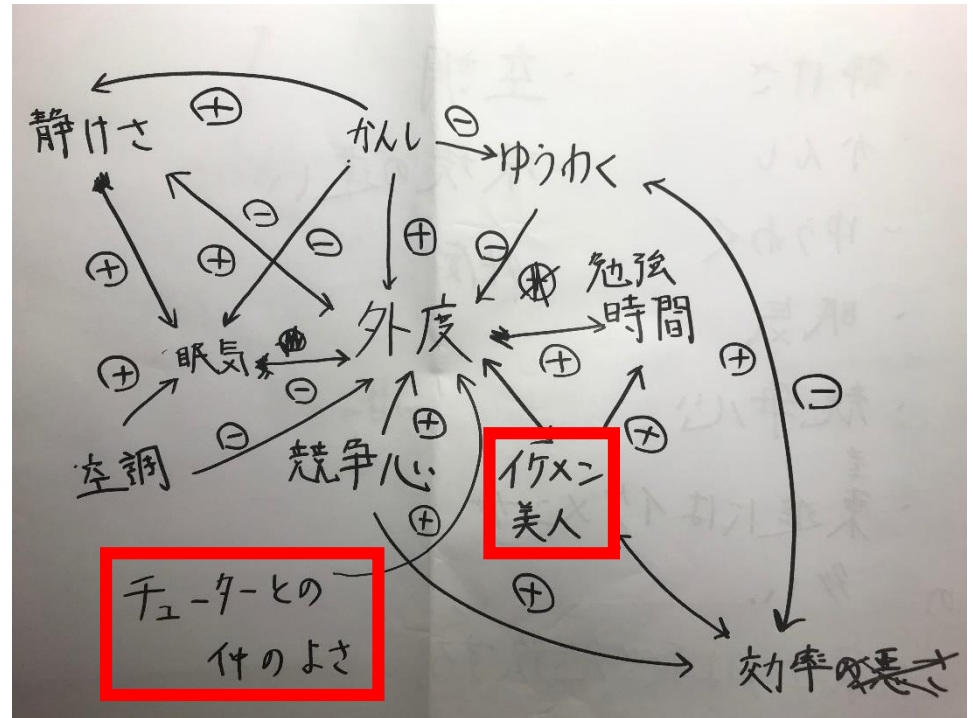 静けさ
かんし
ゆうわく
⊕
⊖
⊕
⊕
⊖
⊖
⊕
⊖
勉強
時間
外度
眠気
⊕
⊖
⊕
⊕
⊖
空調
⊖
競争心
⊕
⊕
イケメン
美人
⊕
⊕
チューターとの
仲のよさ
効率